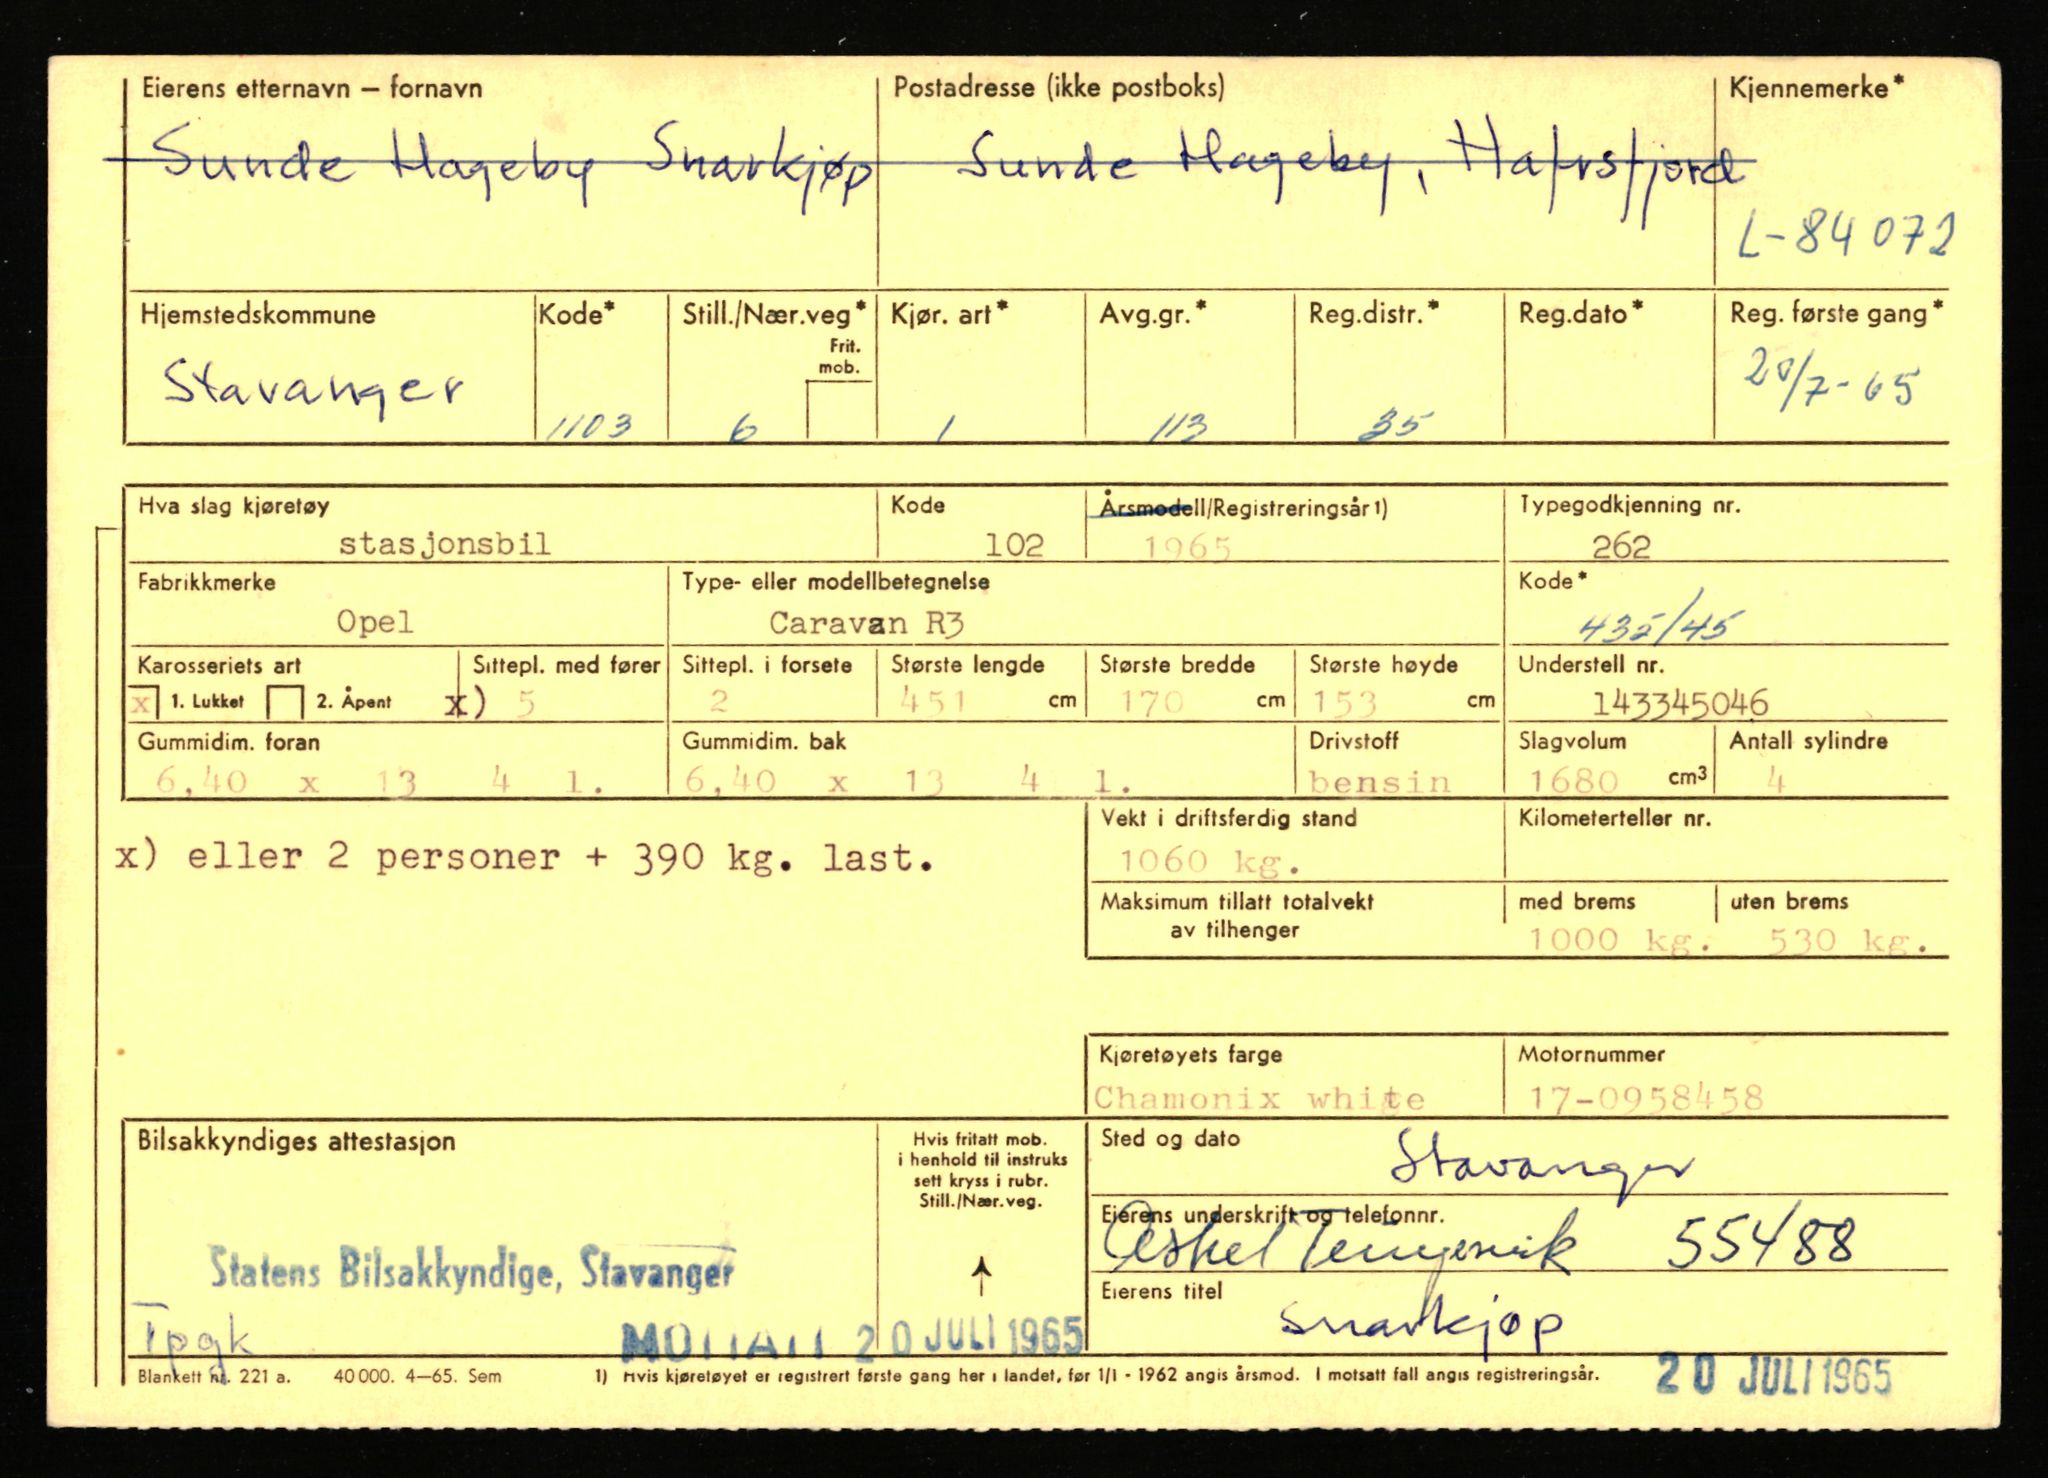 Eierens etternavn – fornavn Postadresse (ikke postboks) Kjennemerke*
Sunde Hageby Snarkjøp Sunde Hageby, Hafrsfjord
L-84072
Hjemstedskommune Kode* Still./Nær.veg* Kjør. art* Avg.gr.* Reg.distr.* Reg.dato* Reg. første gang*
Frit.
mob.
Stavanger 1103 6 1 113 35 20/7-65
Hva slag kjøretøy Kode Årsmodell/Registreringsår 1) Typegodkjenning nr.
stasjonsbil 102 1965 262
Fabrikkmerke Type- eller modellbetegnelse Kode*
Opel Caravan R3 435/45
Karosseriets art Sittepl. med fører Sittepl. i forsete Største lengde Største bredde Største høyde Understell nr.
x 1. Lukket 2. Åpent x) 5 2 451 cm 170 cm 153 cm 143345046
Gummidim. foran Gummidim. bak Drivstoff Slagvolum Antall sylindre
6,40 x 13 4 l. 6,40 x 13 4 l. bensin 1680 cm³ 4
Vekt i driftsferdig stand Kilometerteller nr.
x) eller 2 personer + 390 kg. last. 1060 kg.
Maksimum tillatt totalvekt med brems uten brems
av tilhenger 1000 kg. 530 kg.
Kjøretøyets farge Motornummer
Chamonix white 17-0958458
Bilsakkyndiges attestasjon Hvis fritatt mob. Sted og dato
i henhold til instruks
sett kryss i rubr.
Still./Nær.veg.
Stavanger
Eierens underskrift og telefonnr.
55488
Statens Bilsakkyndige, Stavanger
Eierens titel
Snarkjøp
Tpgk MOTTATT 20 JULI 1965
Blankett nr. 221 a. 40 000. 4–65. Sem 1) Hvis kjøretøyet er registrert første gang her i landet, før 1/1 - 1962 angis årsmod. I motsatt fall angis registreringsår.
20 JULI 1965